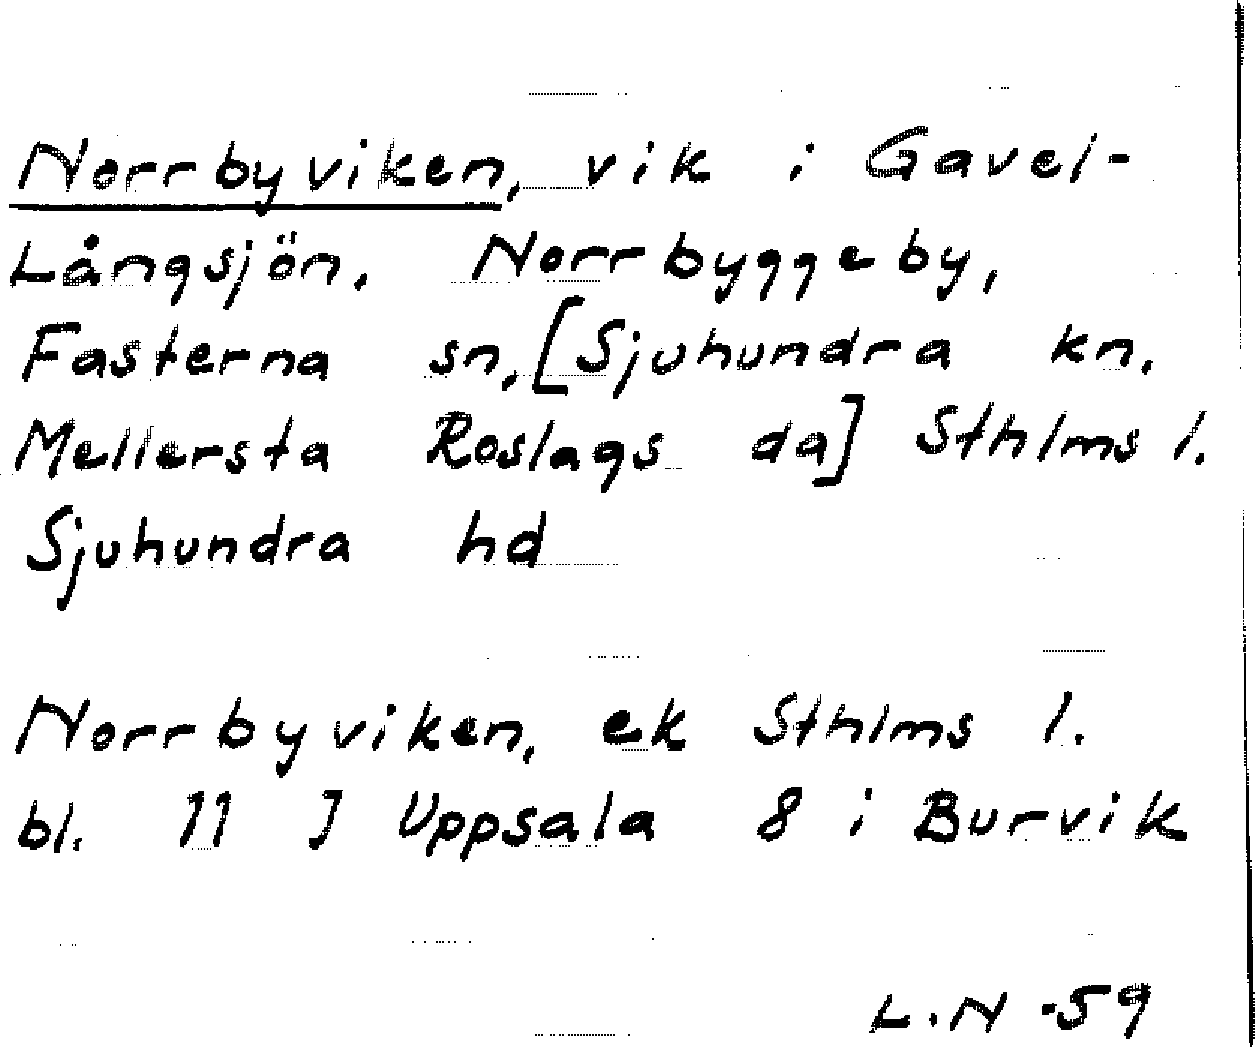 Norrbyviken, vik i Gavel-
Långsjön. Norrbyggeby,
Fasterna sn, [Sjuhundra kn.
Mellersta Roslags da] Sthlms l.
Sjuhundra hd
Norrbyviken, ek Sthlms l.
bl. 11 J Uppsala 8 i Burvik
L.N -59